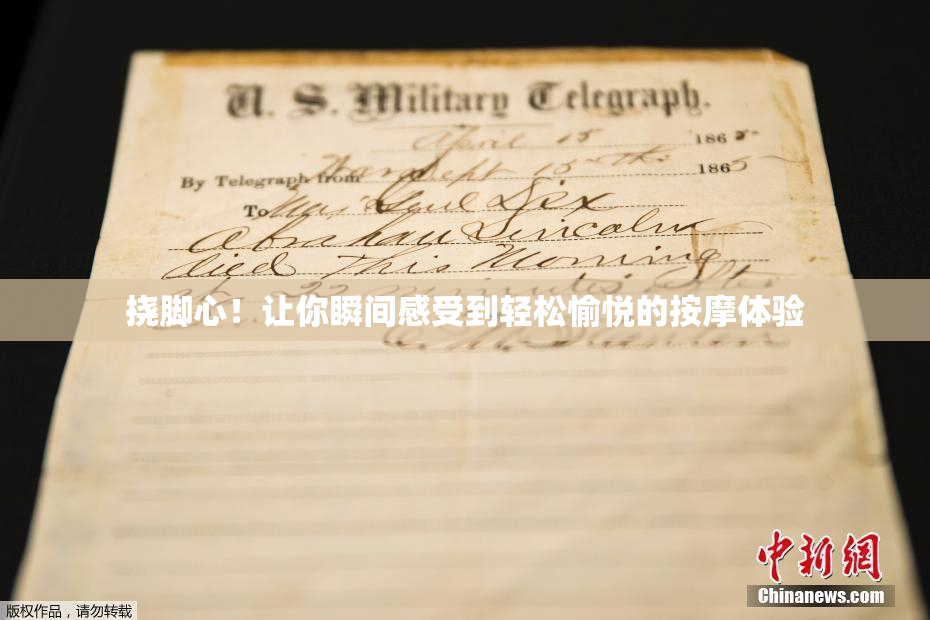 U. S. Military Telegraph.
April 15 1865
By Telegraph from War Dept 15th 1865
To Maj Genl Dix
Abraham Lincoln
died This Morning
at 22 minutes after
挠脚心！让你瞬间感受到轻松愉悦的按摩体验
中新网
Chinanews.com
版权作品，请勿转载